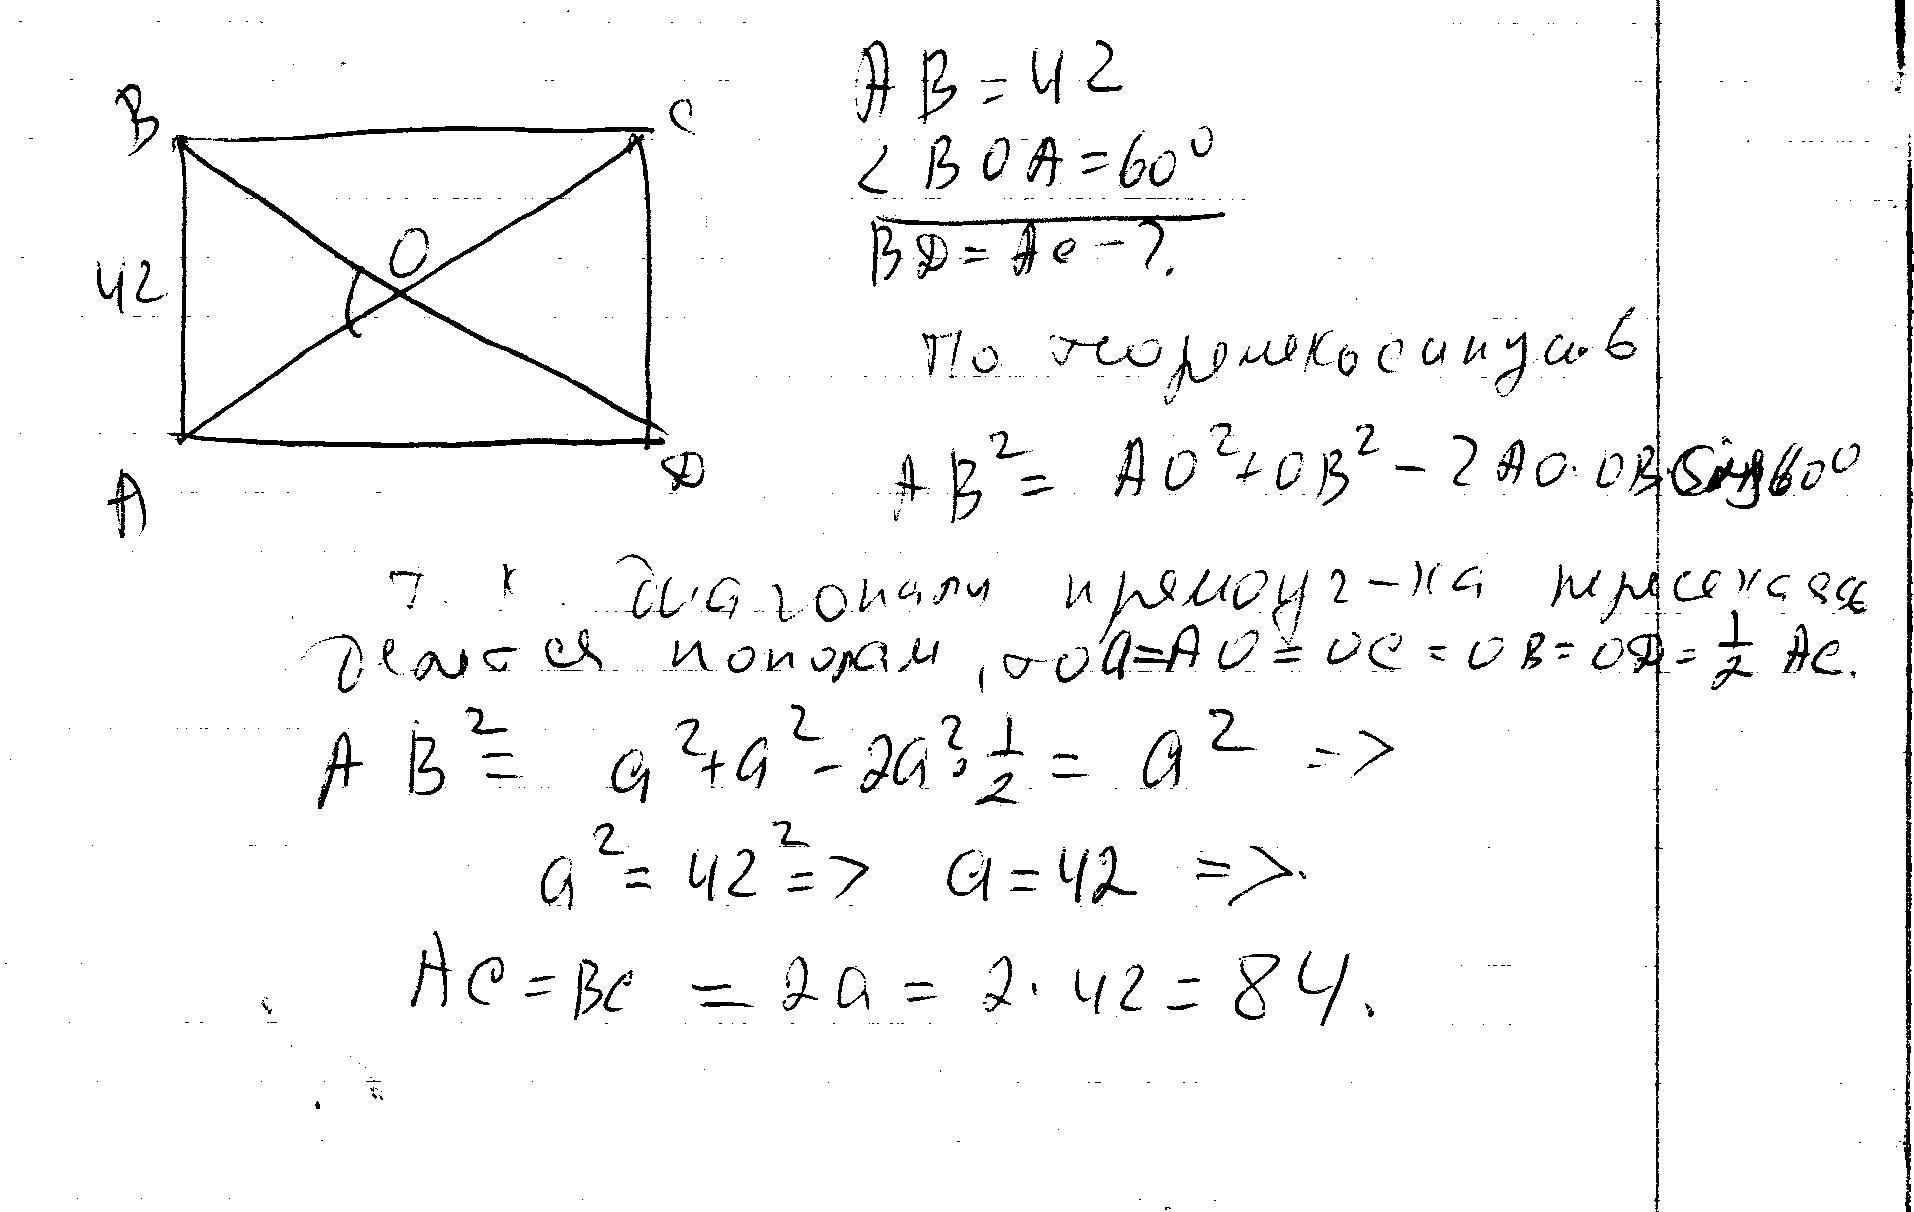 B
C
O
42
A
D
AB = 42
∠BOA = 60⁰
BD = AC - ?
По теореме косинусов
AB² = AO² + OB² - 2AO·OB·Cos60⁰
т.к диагонали прямоуг-ка пересекаясь
делятся пополам, то a = AO = OC = OB = OD = 1/2 AC.
AB² = a² + a² - 2a²·1/2 = a² =>
a² = 42² => a = 42 =>.
AC = BC = 2a = 2·42 = 84.